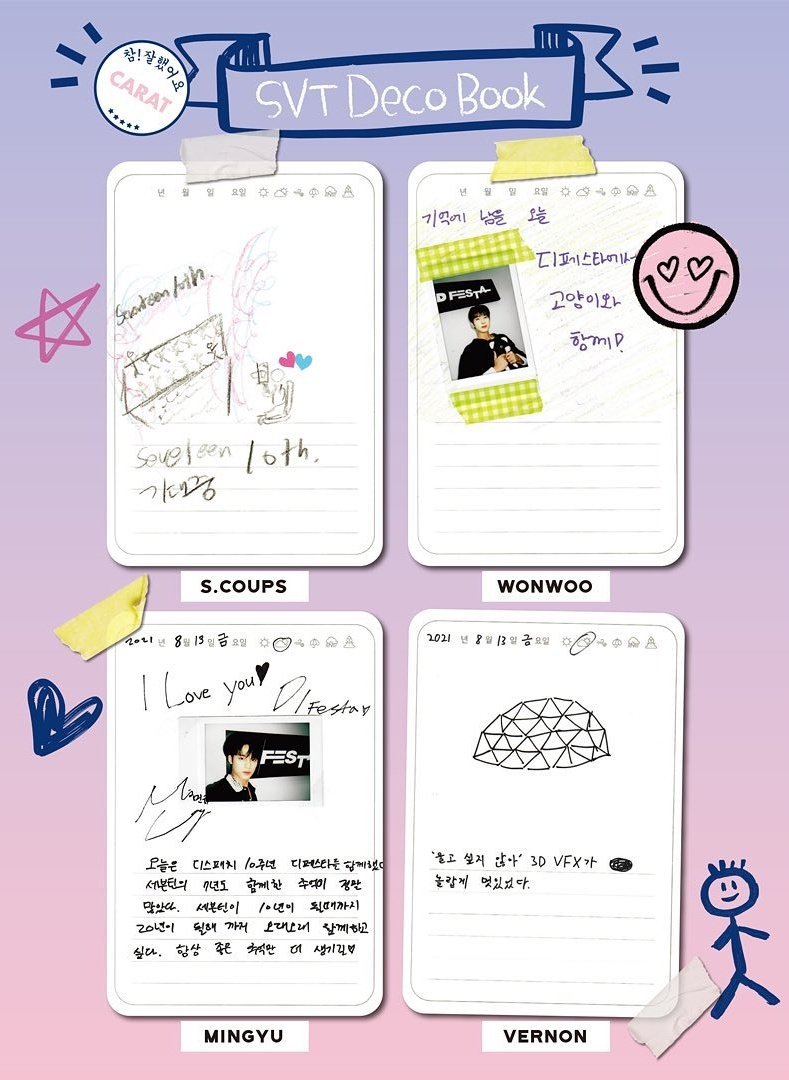 참! 잘했어요
CARAT
SVT Deco Book
년 월 일 요일
Seventeen 10th.
Seventeen 10th.
기대중
S.COUPS
년 월 일 요일
기억에 남을 오늘
D FESTA
디페스타에서
고양이와
함께!
WONWOO
2021 년 8 월 13 일 금 요일
I Love you
D/Festa
FESTA
오늘은 디스패치 10주년 디페스타를 함께했다
세븐틴의 7년도 함께한 추억이 정말
많았다. 세븐틴이 10년이 될때까지
20년이 될때 까지 오래오래 함께하고
싶다. 항상 좋은 추억만 더 생기길
MINGYU
2021 년 8 월 13 일 금 요일
'울고 싶지 않아' 3D VFX가
놀랍게 멋있었다.
VERNON